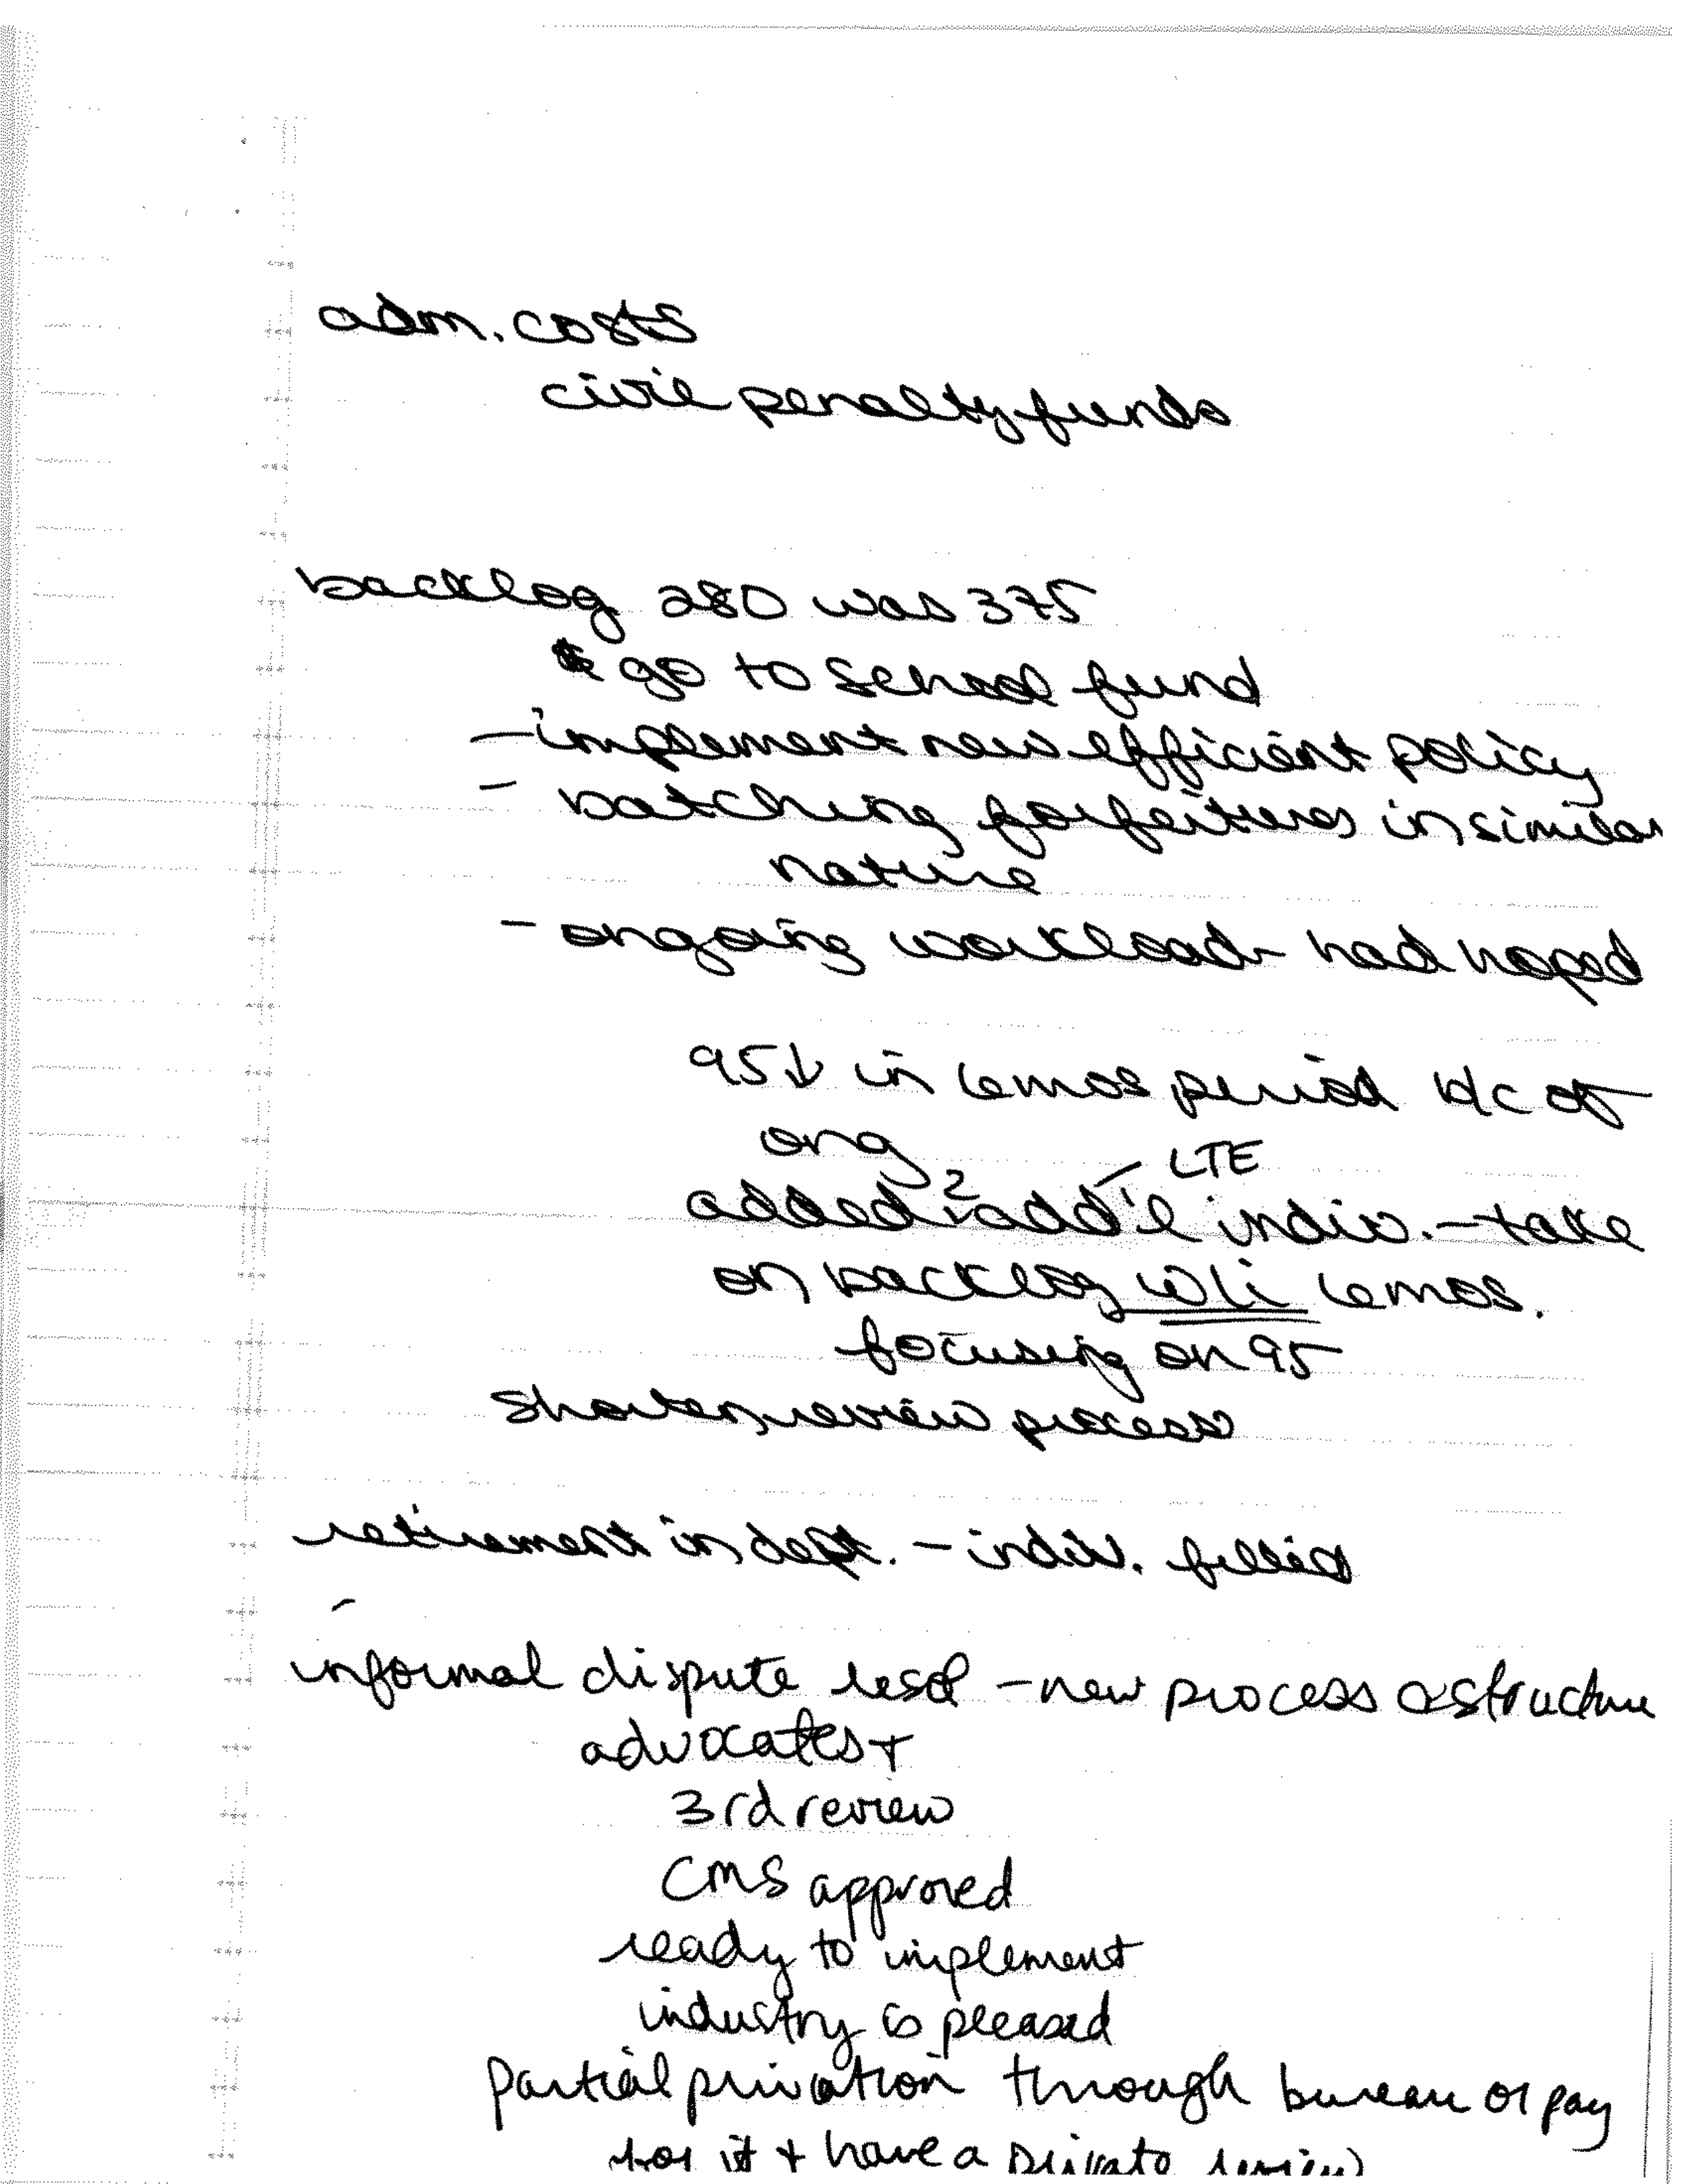 adm. costs
civil penalty funds
backlog 280 was 375
$ go to school fund
- implement new efficient policy
- batching forfeitures in similar
nature
- ongoing workload - had hoped
95↓ in 6 mos period b/c of
ong
- LTE
added 2 add'l indiv. - take
on backlog w/i 6 mos.
focusing on 95
shorten review process
retirement in dept. - indiv. filled
informal dispute resol - new process & structure
advocates +
3rd review
CMS approved
ready to implement
industry is pleased
partial privation through bureau or pay
for it + have a private review